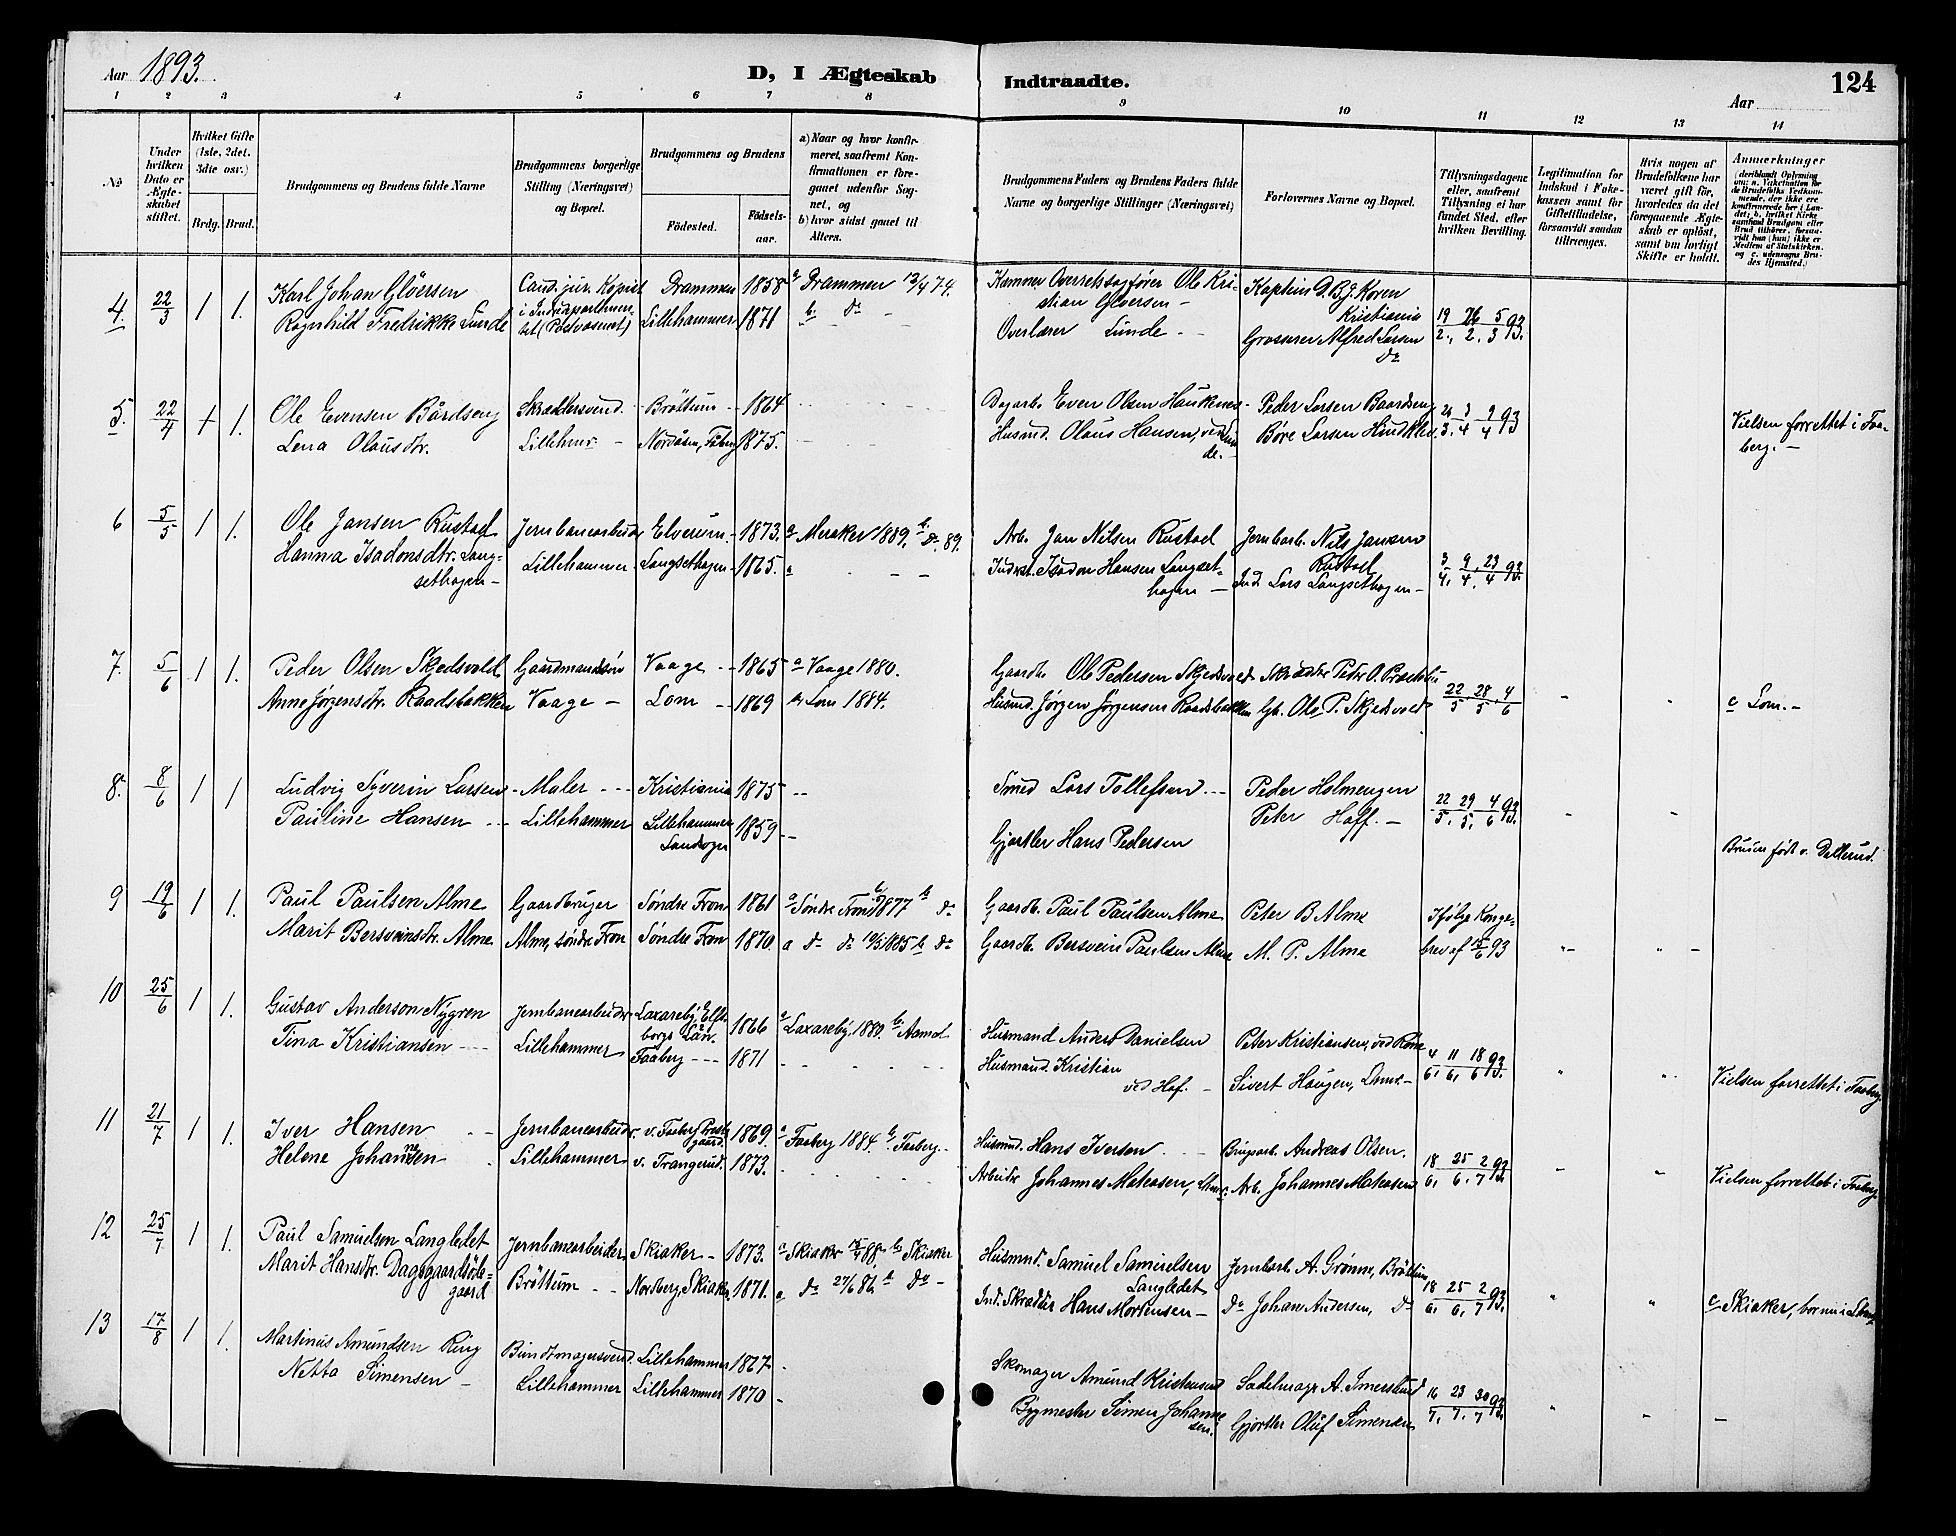 Aar 1893.
D, I Ægteskab Indtraadte.
124
Aar
1 2 3 4 5 6 7 8 9 10 11 12 13 14
No
Under hvilken Dato er Ægteskabet stiftet.
Hvilket Gifte (1ste, 2det, 3die osv.)
Brdg. Brud.
Brudgommens og Brudens fulde Navne
Brudgommens borgerlige Stilling (Næringsvei) og Bopæl.
Brudgommens og Brudens
Födested.
Födselsaar.
a) Naar og hvor konfirmeret, saafremt Konfirmationen er foregaaet udenfor Sognet, og
b) hvor sidst gaaet til Alters.
Brudgommens Faders og Brudens Faders fulde Navne og borgerlige Stillinger (Næringsvei)
Forlovernes Navne og Bopæl.
Tillysningsdagene eller, saafremt Tillysning ei har fundet Sted, efter hvilken Bevilling.
Legitimation for Indskud i Enkekassen samt for Giftetilladelse, forsaavidt saadan tiltrænges.
Hvis nogen af Brudefolkene har været gift för, hvorledes da det foregaaende Ægteskab er oplöst, samt om lovligt Skifte er holdt.
Anmærkninger
(deriblandt Oplysning om: a. Vakcination for de Brudefolks Vedkommende, der ikke ere konfirmerede her i Landet; b. hvilket Kirkesamfund Brudgom eller Brud tilhörer, forsaavidt han (hun) ikke er Medlem af Statskirken. og c. udensogns Brudes Hjemsted.)
4. 22/3 1 1. Karl Johan Gløersen Cand. jur. Kopist Drammen 1858 a Drammen 12/4 74. Kammer Overretssagfører Ole Kristian Gløersen Kaptein D. B. J. Koren Kristiania 19/2, 26/2 5/3 93.
Ragnhild Fredrikke Lunde (Postvæsenet) Lillehammer 1871 b. do Overlærer Lunde Grosserer Alfred Larsen do
5. 22/4 1 1. Ole Evensen Bårdseng Skræddersvend Brøttum 1864 Dagarb. Even Olsen Haukenes Peder Larsen Baardseng 3/4 9/4 93
Lena Olausdtr. Lillehmr Nordåsen, Fåberg 1875. Husmd. Olaus Hansen, Børe Larsen Hindklev. Vielsen forrettet i Faaberg.
6 5/5 1 1. Ole Jansen Rustad Jernbanearbeider Elverum 1873. a Meraker 1889. b. do. 89. Arb. Jan Nilsen Rustad Jernbarb. Nils Jansen Rustad 3/4, 9/4, 23/4 93.
Hanna Isadorsdtr. Langsethagen Lillehammer Langsethagen 1865. a Indrst. Isador Hansen Langsethagen Ind. Lars Langsethagen
7. 5/6 1 1. Peder Olsen Skjedsvold Gaardmandssøn Vaage 1865 a Vaage 1880. Gaardb. Ole Pedersen Skjedsvold Skrædder Peder O. 22/5, 28/5, 4/6
Anne Jørgensdtr. Raadsbakken Vaage Lom 1869 a Lom 1884. Husmd. Jørgen Jørgensen Raadsbakken Gb. Ole P. Skjedsvold c Lom.
8. 8/6 1 1 Ludvig Syverin Larsen Maler Kristiania 1875 Smed Lars Tollefsen Peder Holmengen 22/5, 29/5, 4/6 93.
Pauline Hansen Lillehammer Lillehammer Landsogn 1859 Gjørtler Hans Pedersen Peter Hoff. Bruden født v. Dallerud.
9 19/6 1 1. Paul Paulsen Alme Gaardbruger Søndre Fron 1861 a Søndre Fron 1877 b do Gaardb. Paul Paulsen Alme Peter B Alme Ifølge Kongebrev af 15/6 93
Marit Bersveinsdtr. Alme Alme, Søndre Fron Søndre Fron 1870 a do do 1885 b do Gaardb. Bersvein Paulsen Alme M. P. Alme
10 25/6 1 1. Gustav Anderson Nygren Jernbanearbeider Laxareby, Elfsborgs Län. 1866 a Laxareby 1880. b. Aamot Husmand Anders Danielsen Peter Kristiansen, 4/6, 11/6, 18/6 93.
Tina Kristiansen Lillehammer Faaberg 1871 Husmand. Kristian ved Hof. Sivert Haugen, Lhmr. Vielsen forrettet i Faaberg.
11 21/7 1 1. Iver Hansen Jernbanearbeider v. Faaberg Prestegaard. 1869. a Faaberg 1884 b. Faaberg Husmd. Hans Iversen Andreas Olsen. 18/6, 25/6, 2/7 93.
Helene Johannesen Lillehammer v. Trangerud. 1873. Arbeider Johannes Mateosen, Lhmr. Arb. Johannes Mateosen Vielsen forrettet i Faaberg
12 25/7 1 1. Paul Samuelsen Langledet Jernbanearbeider Skiaker 1873. a Skiaker 88. b. Skiaker Husmd. Samuel Samuelsen Langledet Jernbarb. A. Grønne, Brøttum 18/6, 25/6, 2/7 93.
Marit Hansdtr. Brøttum Nordberg, Skiaker 1871. a. do 27/6 86. b do Ind. Skrædder Hans Mortensen do Johan Andersen, do c. Skiaker,
13 17/8 1 1. Martinus Amundsen Ring Bundtmagersvend. Lillehammer 1867 Skomager Amund Kristensen Sadelmager A. Imerslund 16/7, 23/7, 30/7 93.
Netta Simensen Lillehammer Lillehammer 1870 Bygmester Simen Johannesen. Gjørtler Oluf Simensen